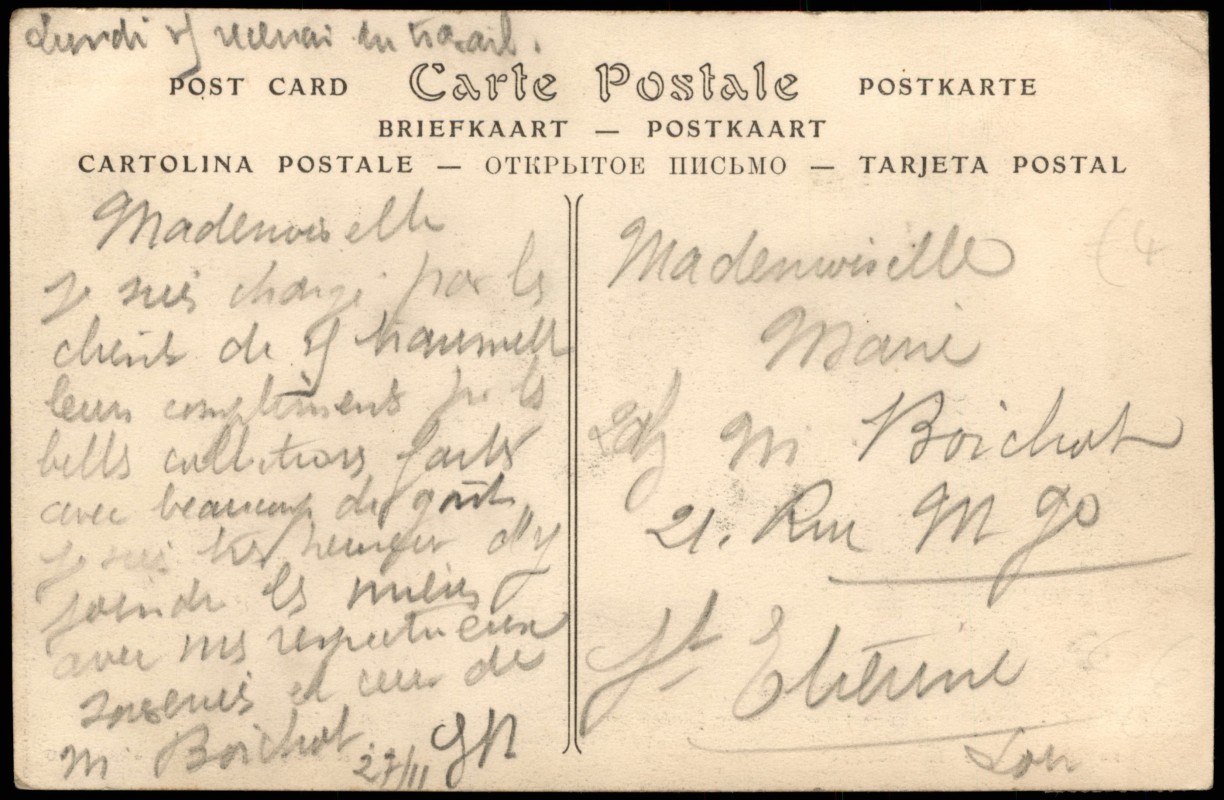 Lundi je serai au travail.
POST CARD Carte Postale POSTKARTE
BRIEFKAART — POSTKAART
CARTOLINA POSTALE — ОТКРЫТОЕ ПИСЬМО — TARJETA POSTAL
Mademoiselle
je suis chargé par les
clients de
leurs compliments pr les
belles collections faites
avec beaucoup de goût
je suis très heureux d'y
joindre les miens
avec mes respectueux
et ceux de
M Boichot
27/11
Mademoiselle
Marie
chz M Boichot
21. Rue M
St Etienne
Loire
(4